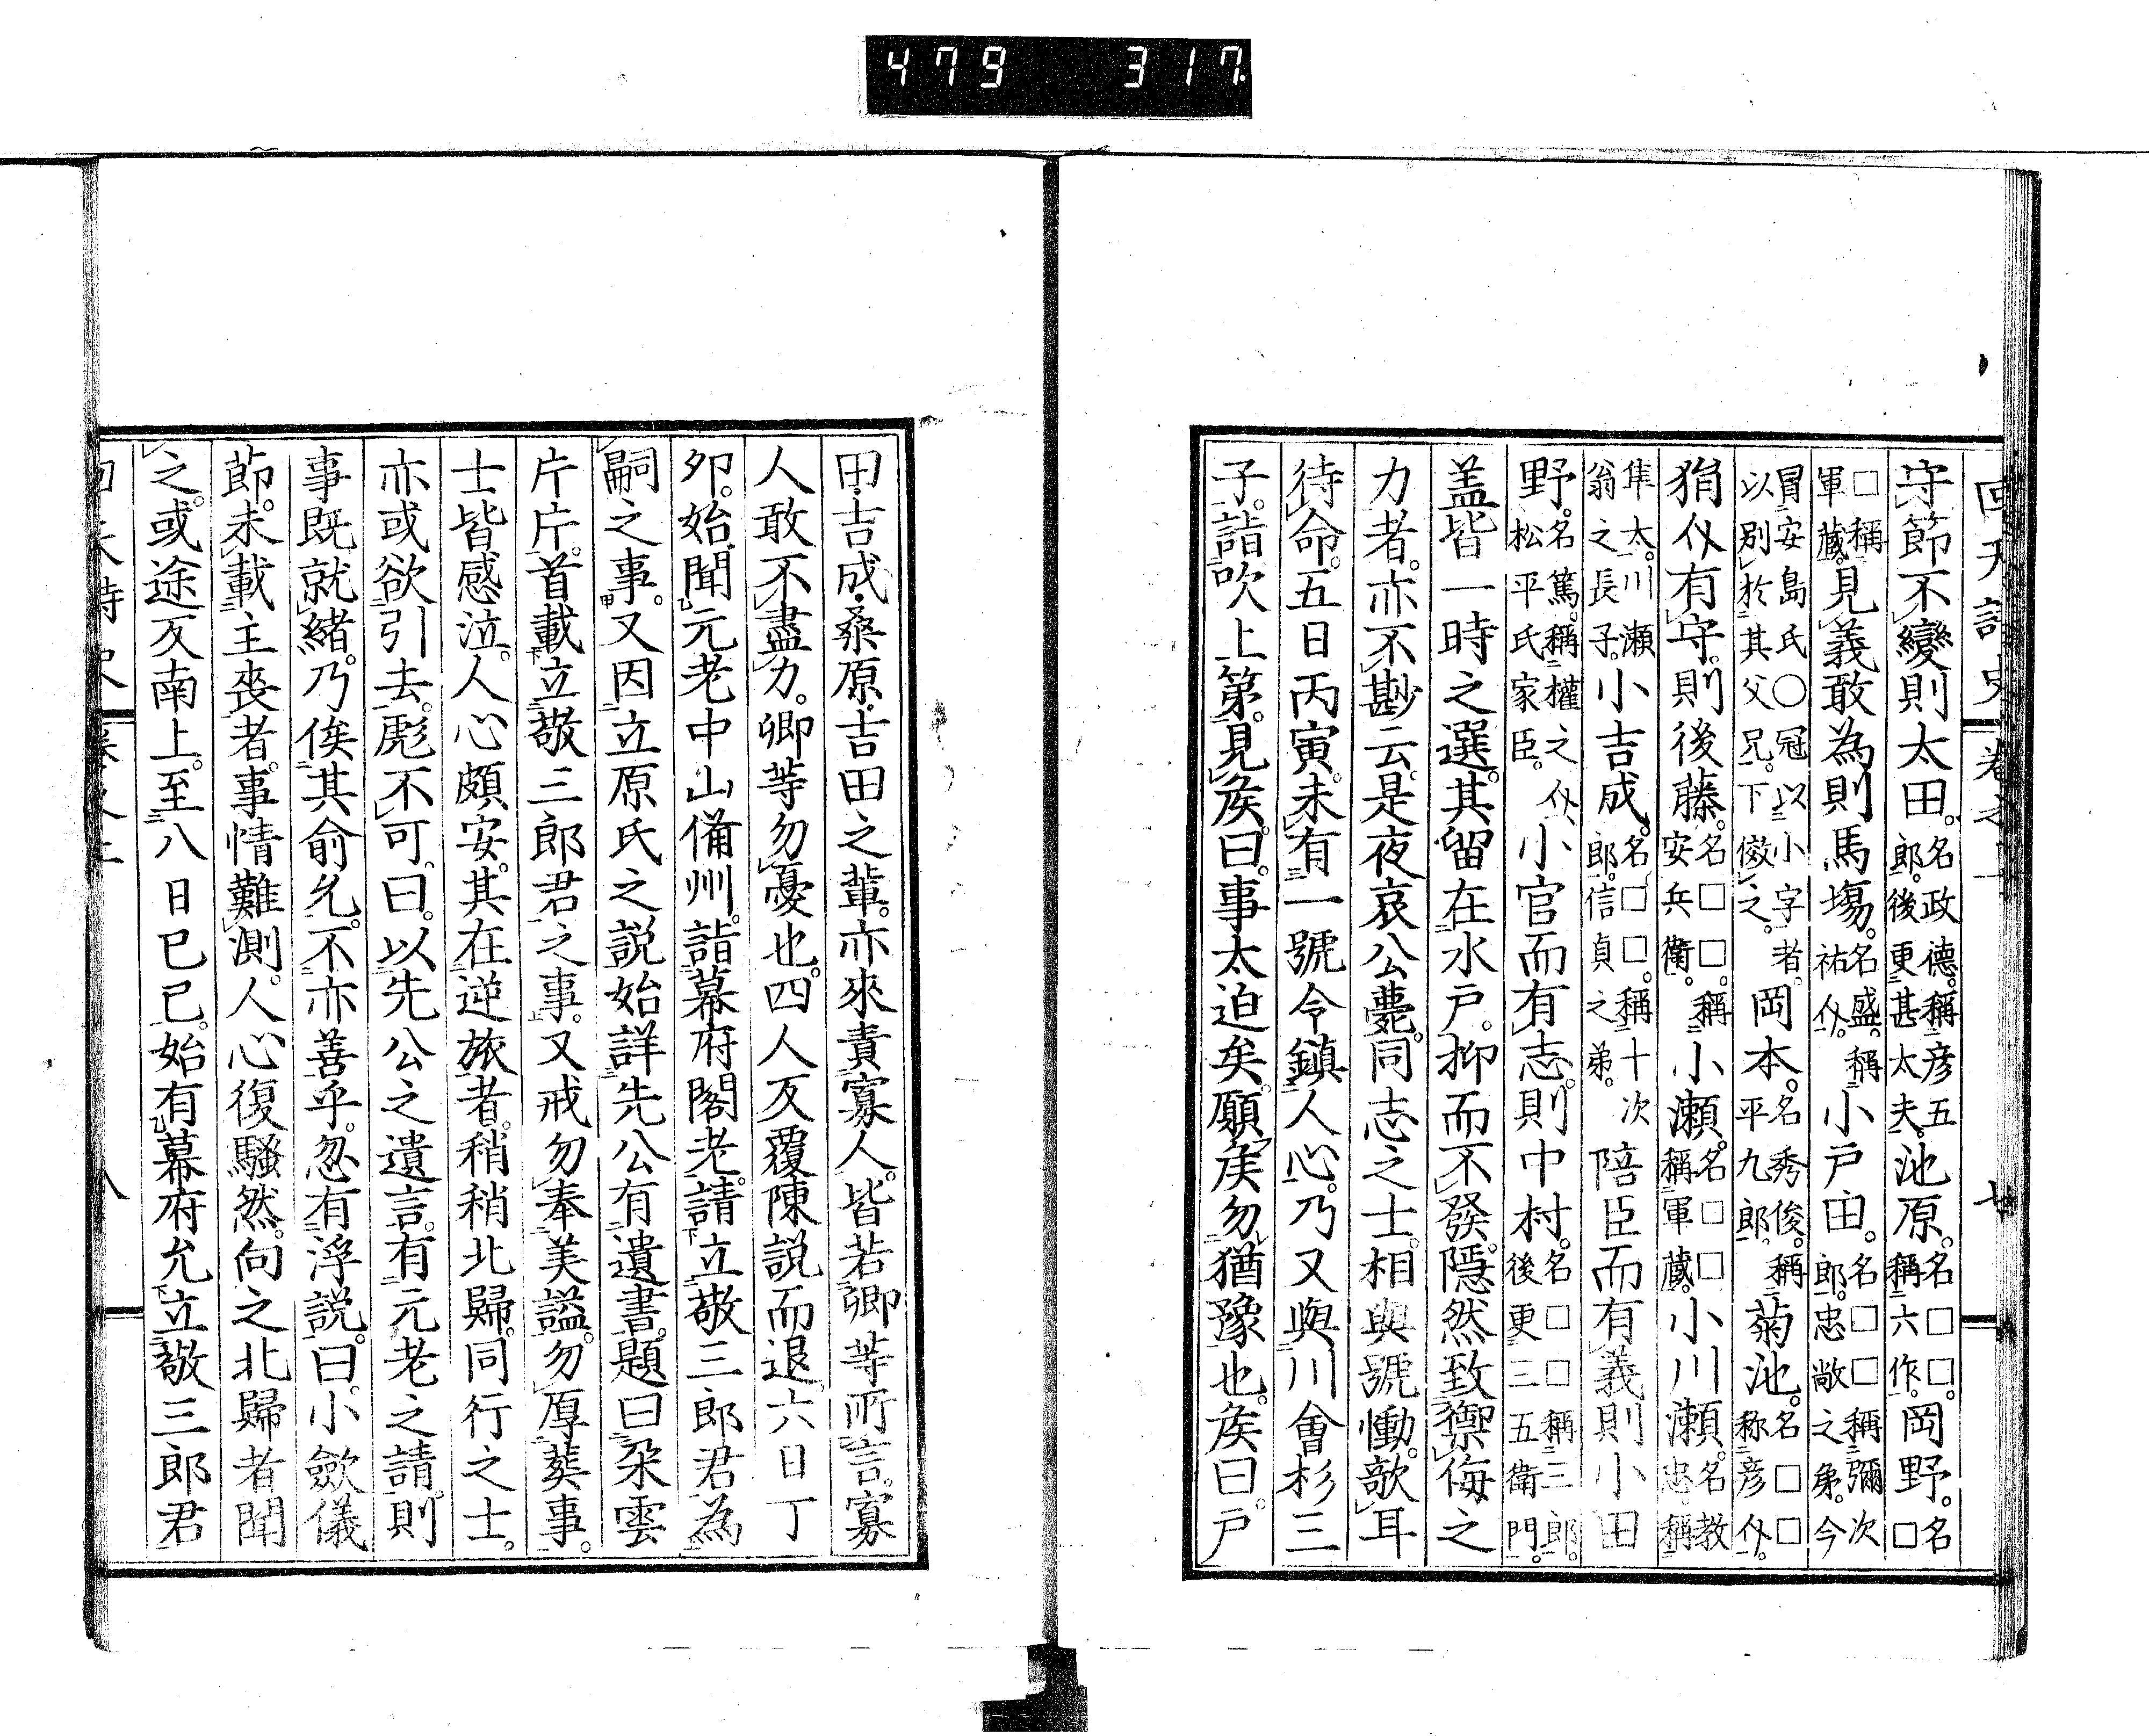 479 317
回天詩史 卷之上 七
守節不變則太田。名政德。稱彥五郎。後更甚太夫。池原。名□□。稱六作。岡野。名□
□稱軍藏。見義敢為則馬塲。名盛。稱祐㕥。小戸田。名□□稱彌次郎。忠敞之弟。今
冒安島氏○冠以小字者。以別於其父兄。下傚之。岡本。名秀俊。稱平九郎。菊池。名□□称彥㕥。
狷㕥有守。則後藤。名□□。稱安兵衛。小瀨。名□□稱軍藏。小川瀨。名教忠。稱
隼太。川瀨翁之長子。小吉成。名□□。稱十次郎。信貞之弟。陪臣而有義則小田
野。名篤。稱權之㕥、松平氏家臣。小官而有志。則中村。名□□稱三郎。後更三五衛門。
盖皆一時之選。其留在水戸。抑而不發。隱然致禦侮之
力者。亦不尠云。是夜哀公薨。同志之士。相與號慟。歃耳
待命。五日丙寅。未有一號令鎮人心。乃又與川會杉三
子。詣吹上第。見矦。曰。事太迫矣。願矦勿猶豫也。矦曰。戸
田・吉成・桑原・吉田之輩。亦來責寡人。皆若卿等所言。寡
人敢不盡力。卿等勿憂也。四人反覆陳説而退。六日丁
夘。始聞元老中山備州。詣幕府閣老。請立敬三郎君為
嗣之事。又因立原氏之説始詳先公有遺書。題曰朶雲
片片。首載立敬三郎君之事。又戒勿奉美謚。勿厚葬事。
士皆感泣。人心頗安。其在逆旅者。稍稍北歸。同行之士。
亦或欲引去。彪不可。曰。以先公之遺言。有元老之請。則
事既就緒。乃俟其俞允。不亦善乎。忽有浮説。曰。小歛儀
節。未載主喪者。事情難測。人心復騷然。向之北歸者聞
之。或途反南上。至八日巳己。始有幕府允立敬三郎君
八